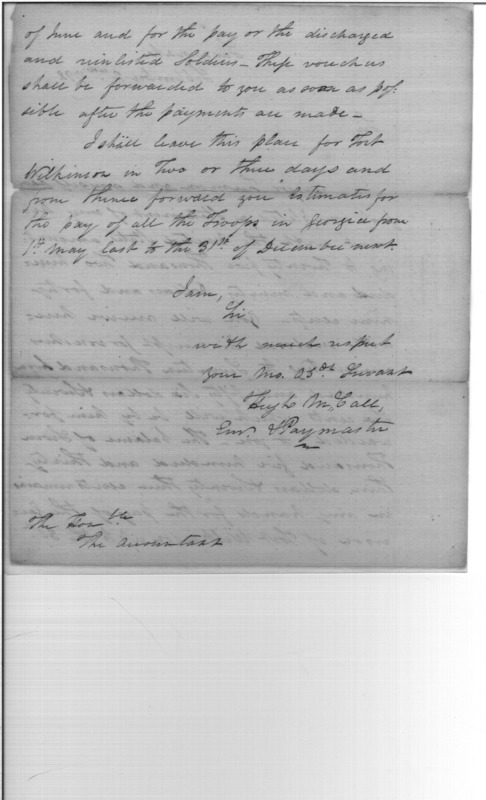 of June and for the pay or the discharged
and reinlisted Soldiers – These vouchers
shall be forwarded to you as soon as pos:
sible after the payments are made –
I shall leave this place for Fort
Wilkinson in Two or three days and
from thence forward you Estimates for
the pay of all the Troops in Georgia from
1st. May last to the 31st. of December next.
I am,
Sir
with much respect
your Mo. Obdt. Servant
Hugh McCall,
& Paymaster
The Honble
The Accountant